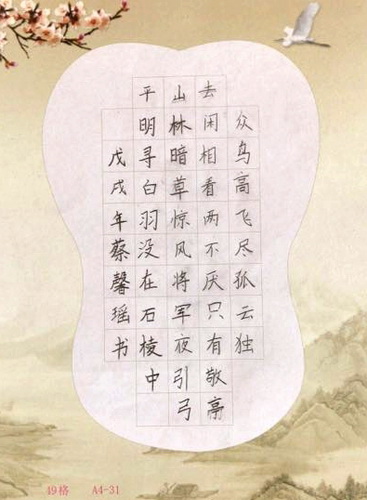 众鸟高飞尽孤云独
去闲相看两不厌只有敬亭
山林暗草惊风将军夜引弓
平明寻白羽没在石棱中
戊戌年蔡馨瑶书
49格 A4-31